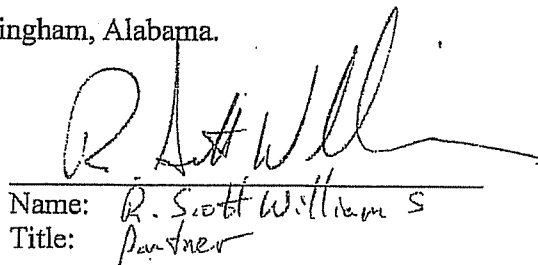 ingham, Alabama.
R. Scott Williams
Name: R. Scott William s
Title: Partner